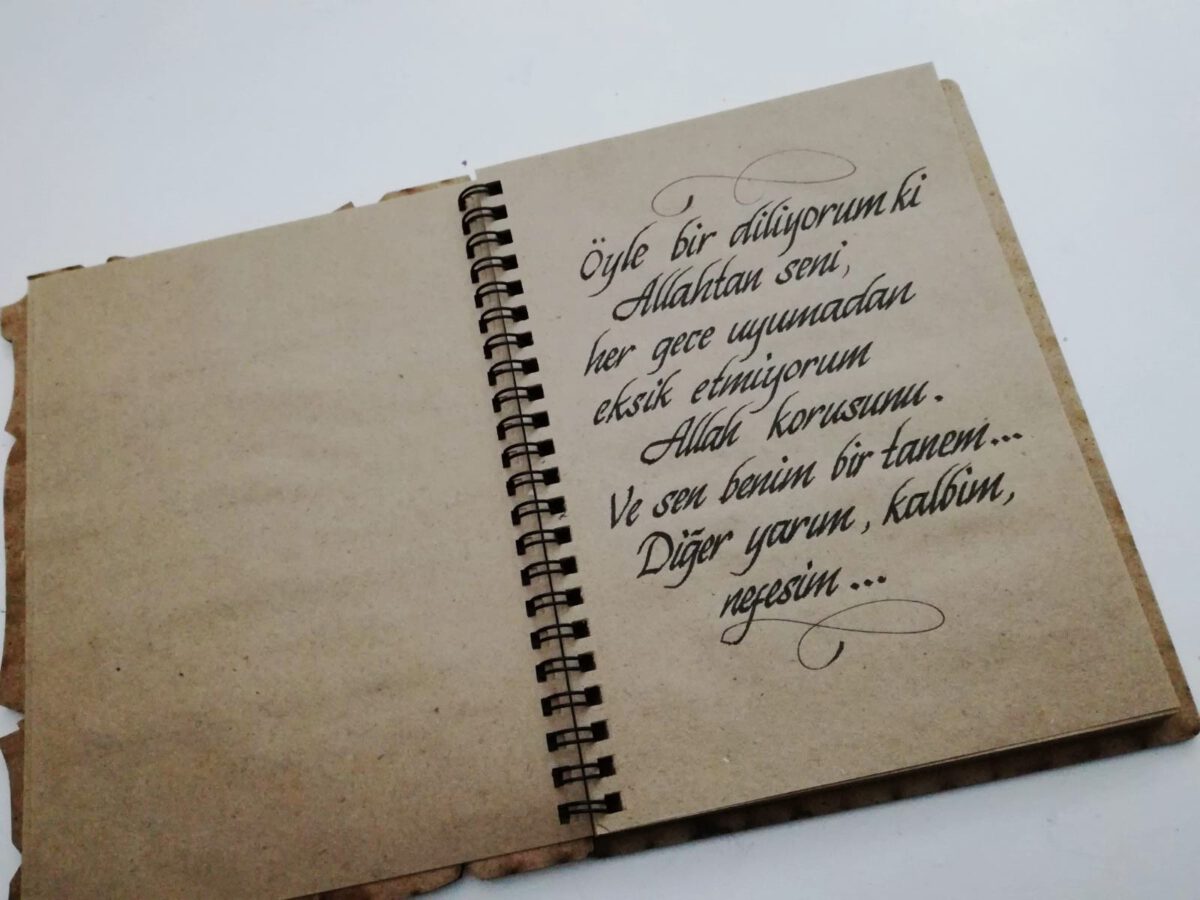 Öyle bir diliyorum ki
Allahtan seni,
her gece uyumadan
eksik etmiyorum
Allah korusunu.
Ve sen benim bir tanem...
Diğer yarım, kalbim,
nefesim...